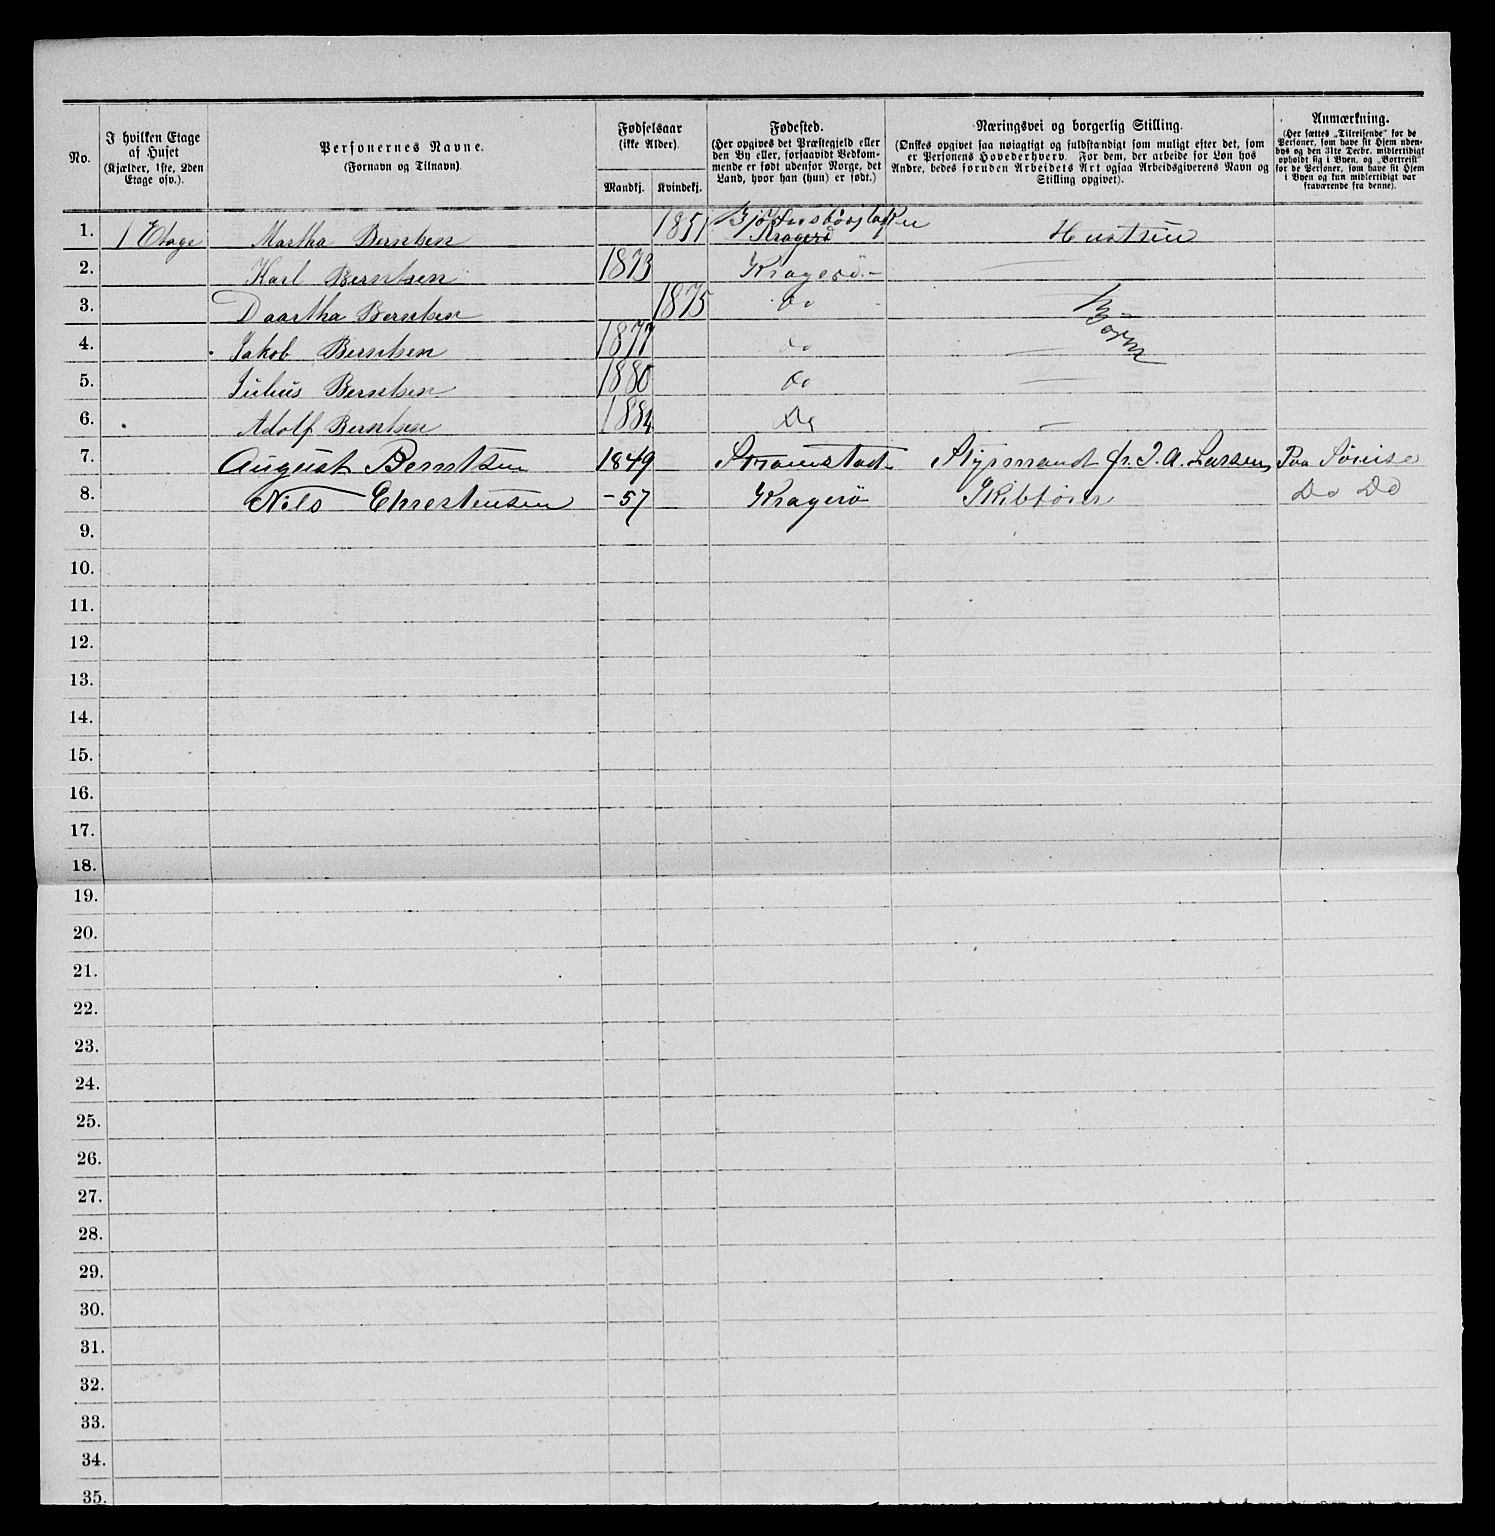 No.
I hvilken Etage
af Huset
(Kjælder, 1ste, 2den
Etage osv.).
Personernes Navne.
(Fornavn og Tilnavn).
Fødselsaar
(ikke Alder).
Mandkj. Kvindekj.
Fødested.
(Her opgives det Præstegjeld eller
den By eller, forsaavidt Vedkom-
mende er født udenfor Norge, det
Land, hvor han (hun) er født.)
Næringsvei og borgerlig Stilling.
(Ønskes opgivet saa nøiagtigt og fuldstændigt som muligt efter det, som
er Personens Hovederhverv. For dem, der arbeide for Løn hos
Andre, bedes foruden Arbeidets Art ogsaa Arbeidsgiverens Navn og
Stilling opgivet).
Anmærkning.
(Her sættes „Tilreisende“ for de
Personer, som have sit Hjem uden-
bys og den 31te Decbr. midlertidigt
opholdt sig i Byen, og „Bortreist“
for de Personer, som have sit Hjem
i Byen og kun midlertidigt var
fraværende fra denne).
1. 1 Etage Martha Berntsen 1851 Kragerø Hustrue
2. Karl Berntsen 1873 Kragerø. –
3. Daartha Berntsen 1875 do Børn
4. Jakob Berntsen 1877 do
5. Julius Berntsen 1880 do
6. Adolf Berntsen 1884 Do
7. August Berntsen 1849 Strømstad Styrmand fr. J. A. Larsen Paa
8. Nils Christensen – 57 Kragerø Do Do
9.
10.
11.
12.
13.
14.
15.
16.
17.
18.
19.
20.
21.
22.
23.
24.
25.
26.
27.
28.
29.
30.
31.
32.
33.
34.
35.